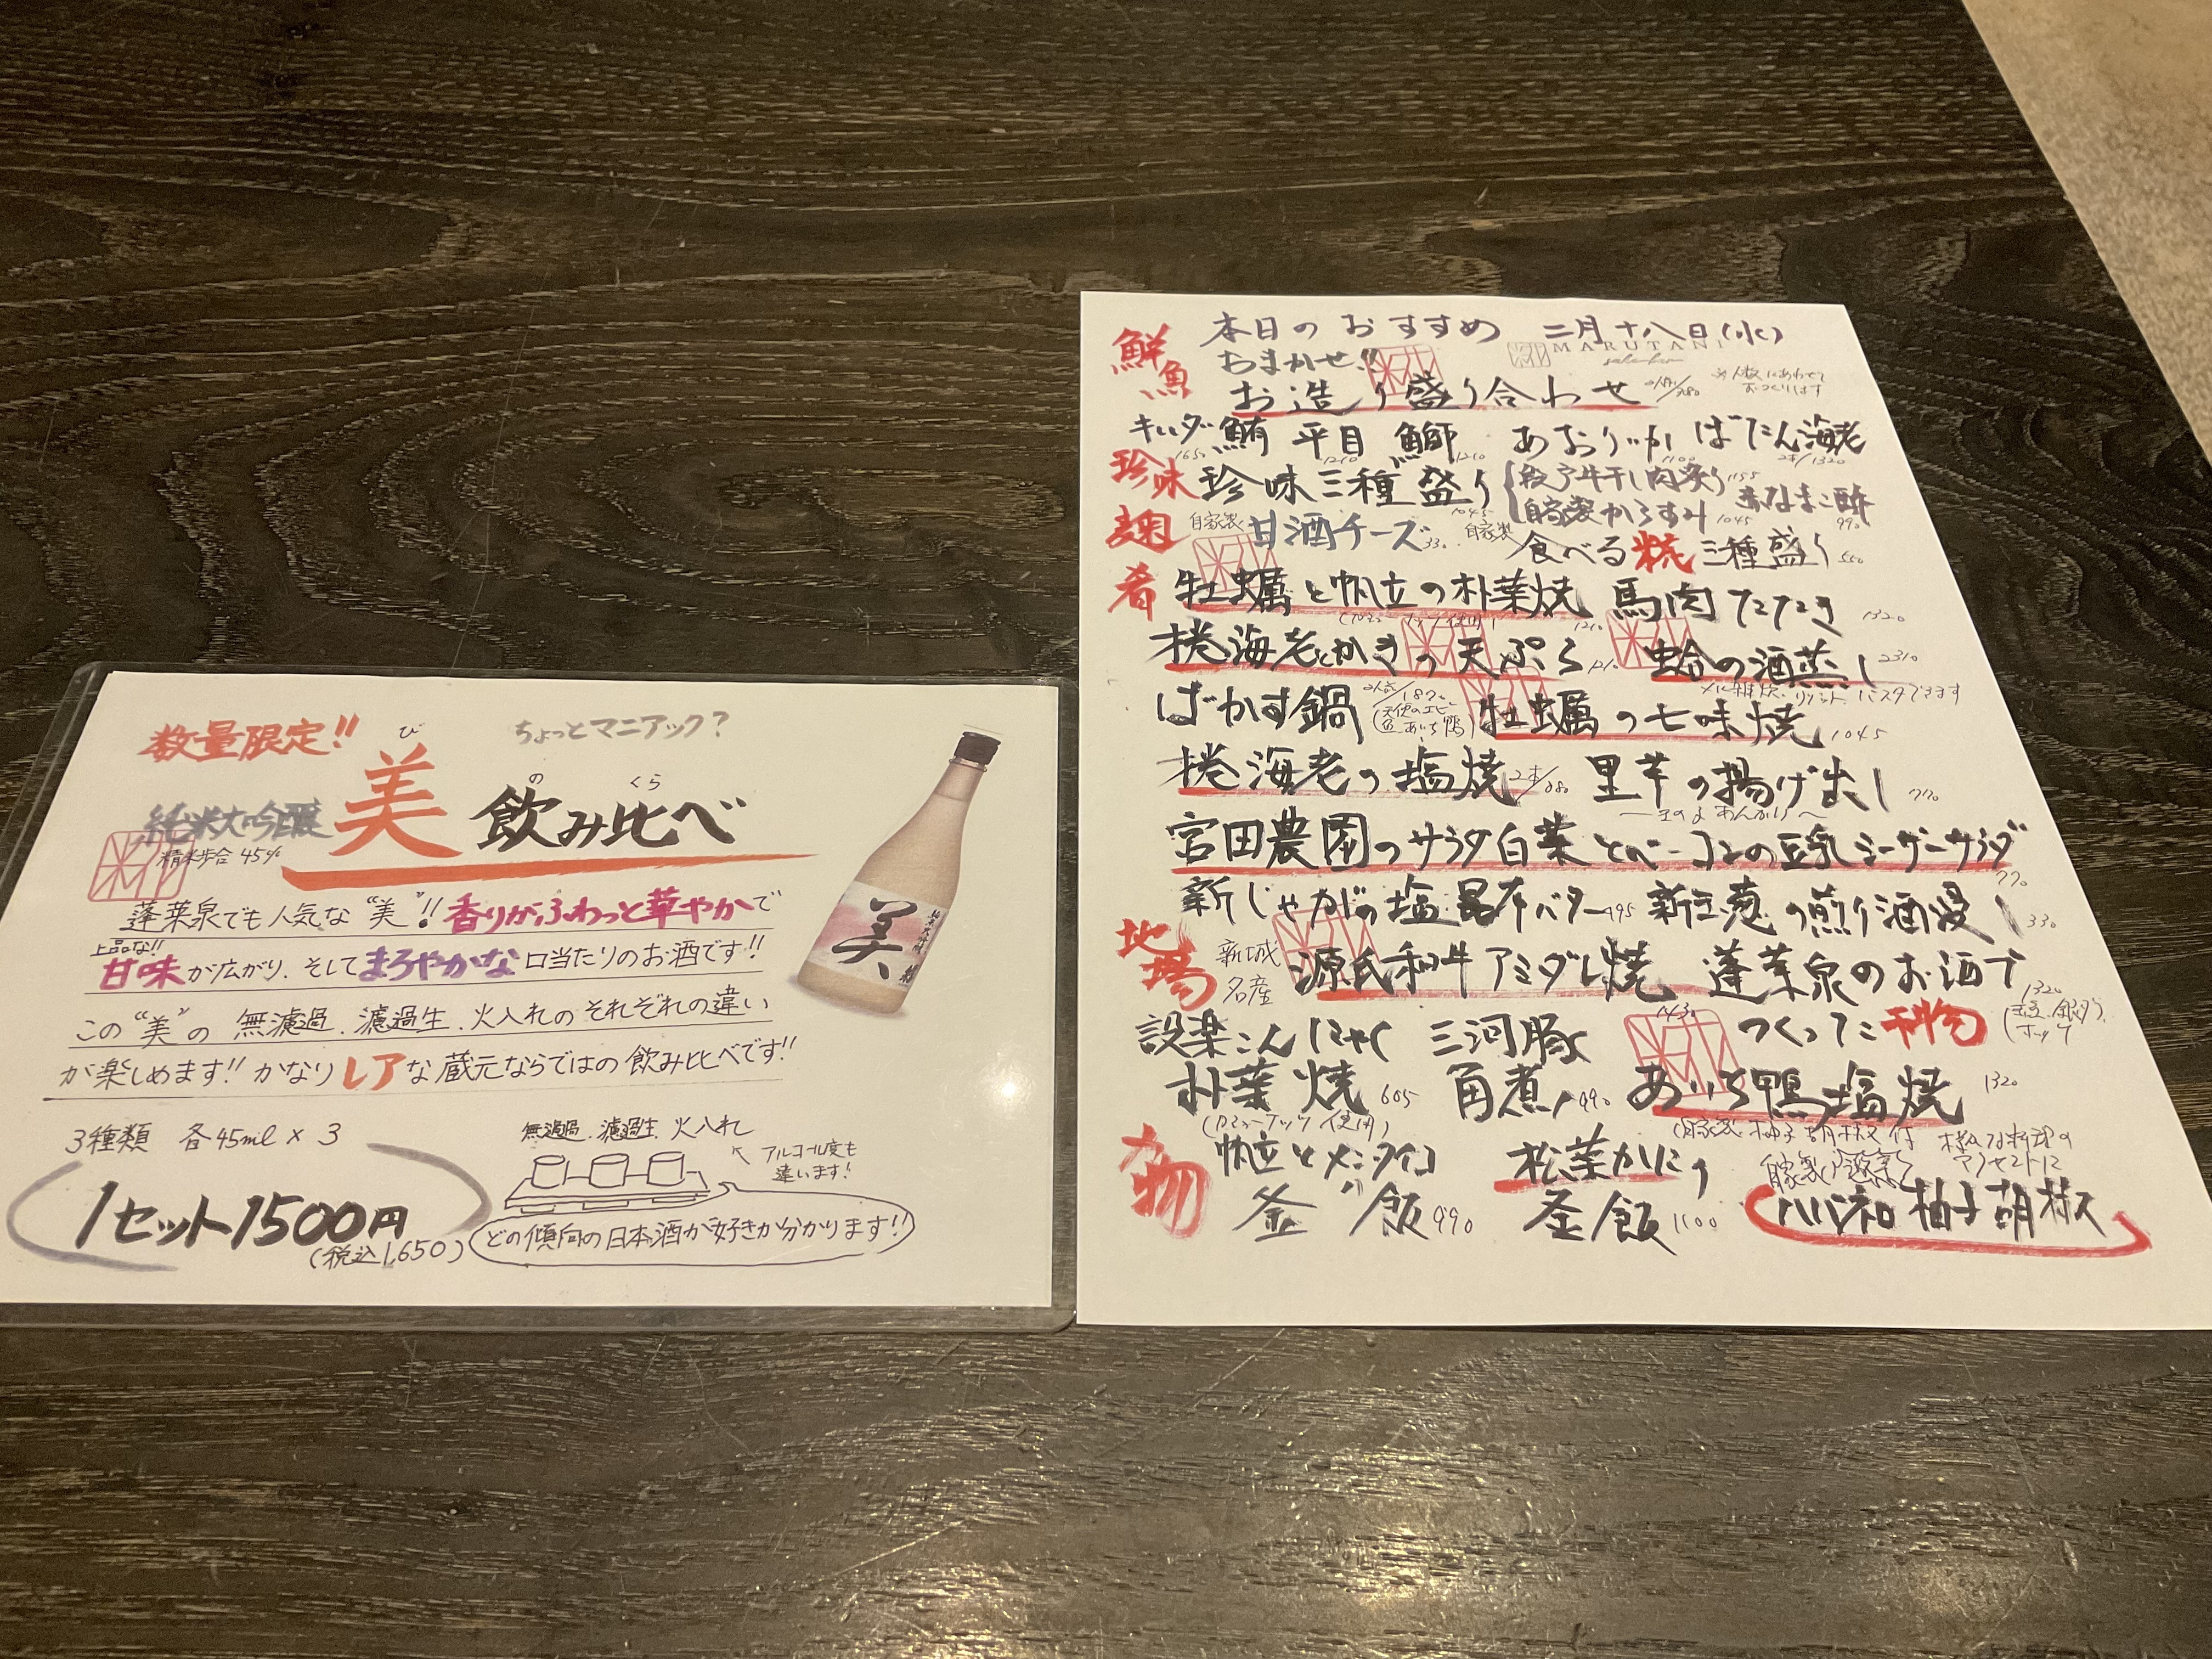 数量限定!!
ちょっとマニアック?
び
純米大吟醸
美
飲み比べ
の
くら
精米歩合 45%
蓬莱泉でも人気な"美"!! 香りがふわっと華やかで
上品な!!
甘味が広がり、そしてまろやかな口当たりのお酒です!!
この"美"の 無濾過、濾過生、火入れのそれぞれの違い
が楽しめます!! かなりレアな蔵元ならではの飲み比べです!!
3種類 各45ml × 3
1セット1500円
(税込1,650)
無濾過 濾過生 火入れ
アルコール度も
違います!
どの傾向の日本酒が好きか分かります!!
美
本日のおすすめ 二月十八日(水)
MARUTANI
鮮魚
おまかせ!!
お造り盛り合わせ
※人数にあわせて
おつくりします
鮪 平目 鰤 あおりいか ぼたん海老
1650 1210 1210 1100 2本/1320
珍味
珍味三種盛り
1045
牛干し肉炙り 1155
自家製からすみ 1045
赤なまこ酢
990
麹
自家製 甘酒チーズ 330 自家製 食べる糀三種盛り 550
肴
牡蠣と帆立の朴葉焼 1210 馬肉たたき 1320
海老とかきの天ぷら 蛤の酒蒸し 2310
〆に雑炊、リゾット、パスタできます
ばかす鍋
牡蠣の七味焼 1045
海老の塩焼 里芋の揚げ出し 770
きのこあんかけ
宮田農園のサラダ白菜とベーコンの豆乳シーザーサラダ
770
新じゃがの塩昆布バター 495 新玉葱の煎り酒浸し 330
地場
新城
名産
源氏和牛アミダレ焼 1430
蓬莱泉のお酒で
つくった干物
1320
ホッケ
設楽こんにゃく
朴葉焼 605
三河豚
角煮 990
あいち鴨塩焼 1320
(自家製 柚子胡椒付
物
帆立とメンマイコ
釜飯 990
松葉かにの
釜飯 1100
柚子胡椒